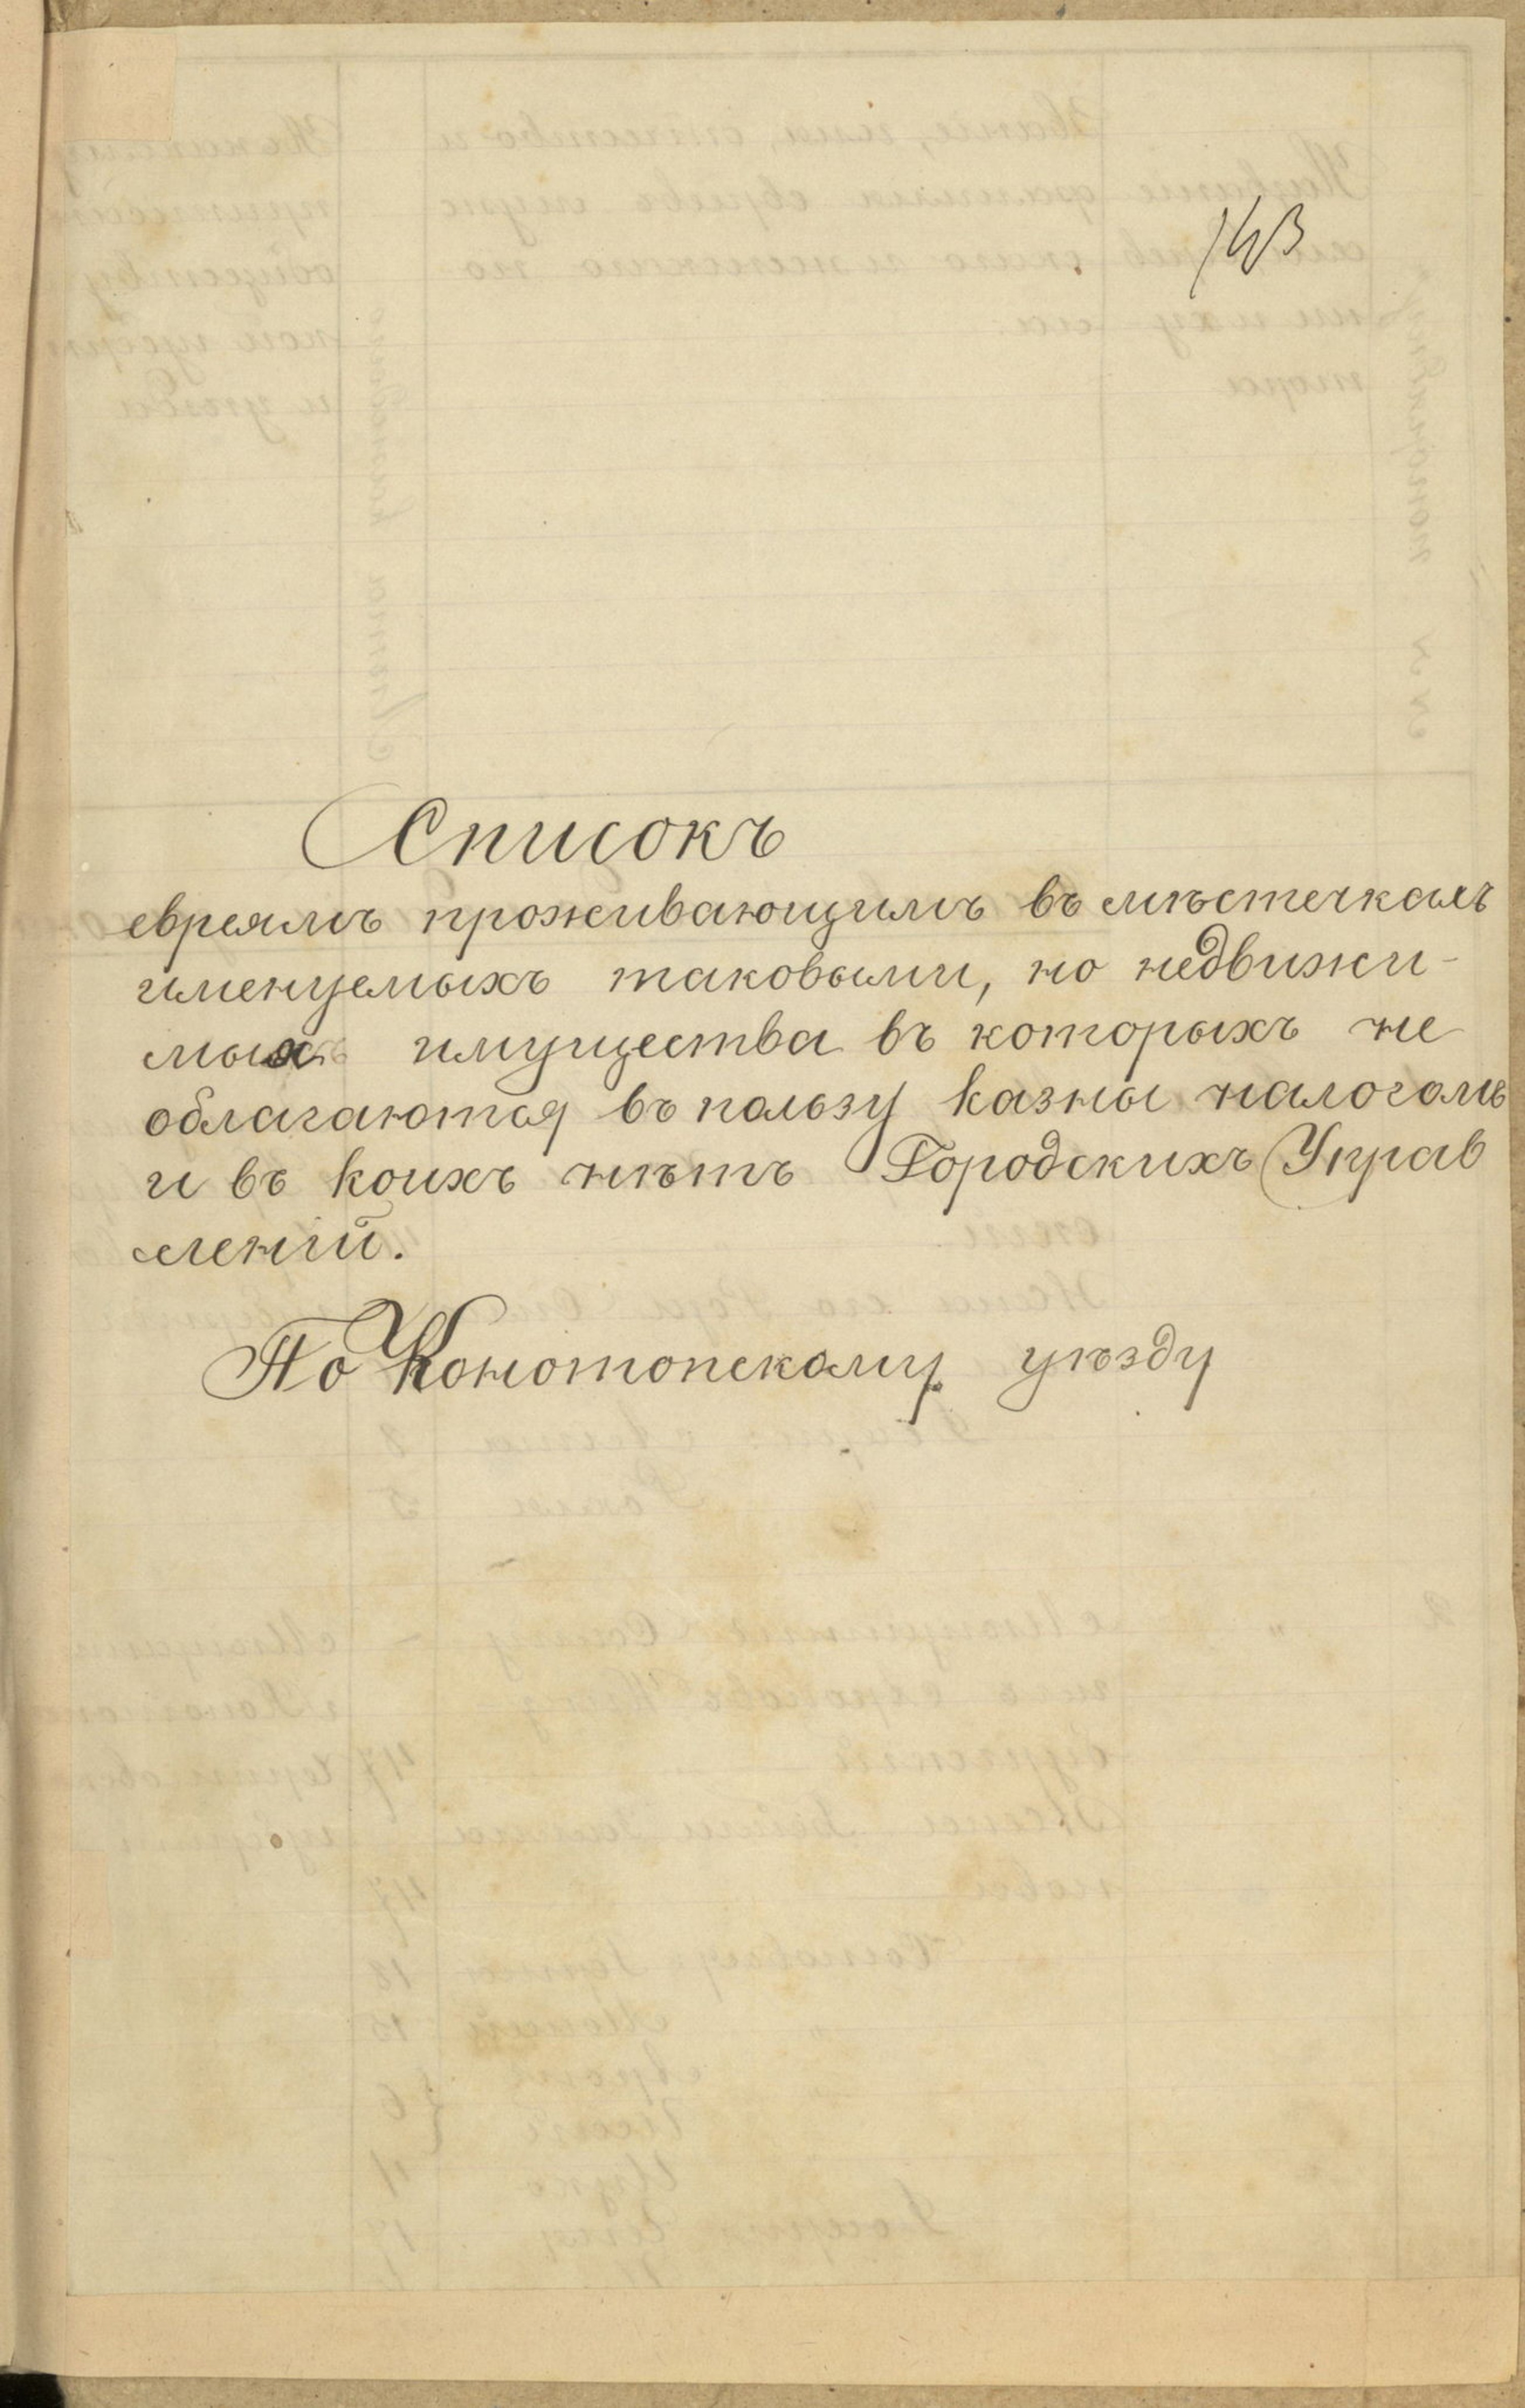 143
Списокъ
евреямъ проживающимъ въ мѣстечкахъ
именуемыхъ таковыми, но недвижи-
мыя имущества въ которыхъ не
облагаются въ пользу казны налогомъ
и въ коихъ нѣтъ Городскихъ Управ
леній.
По Конотопскому уѣзду